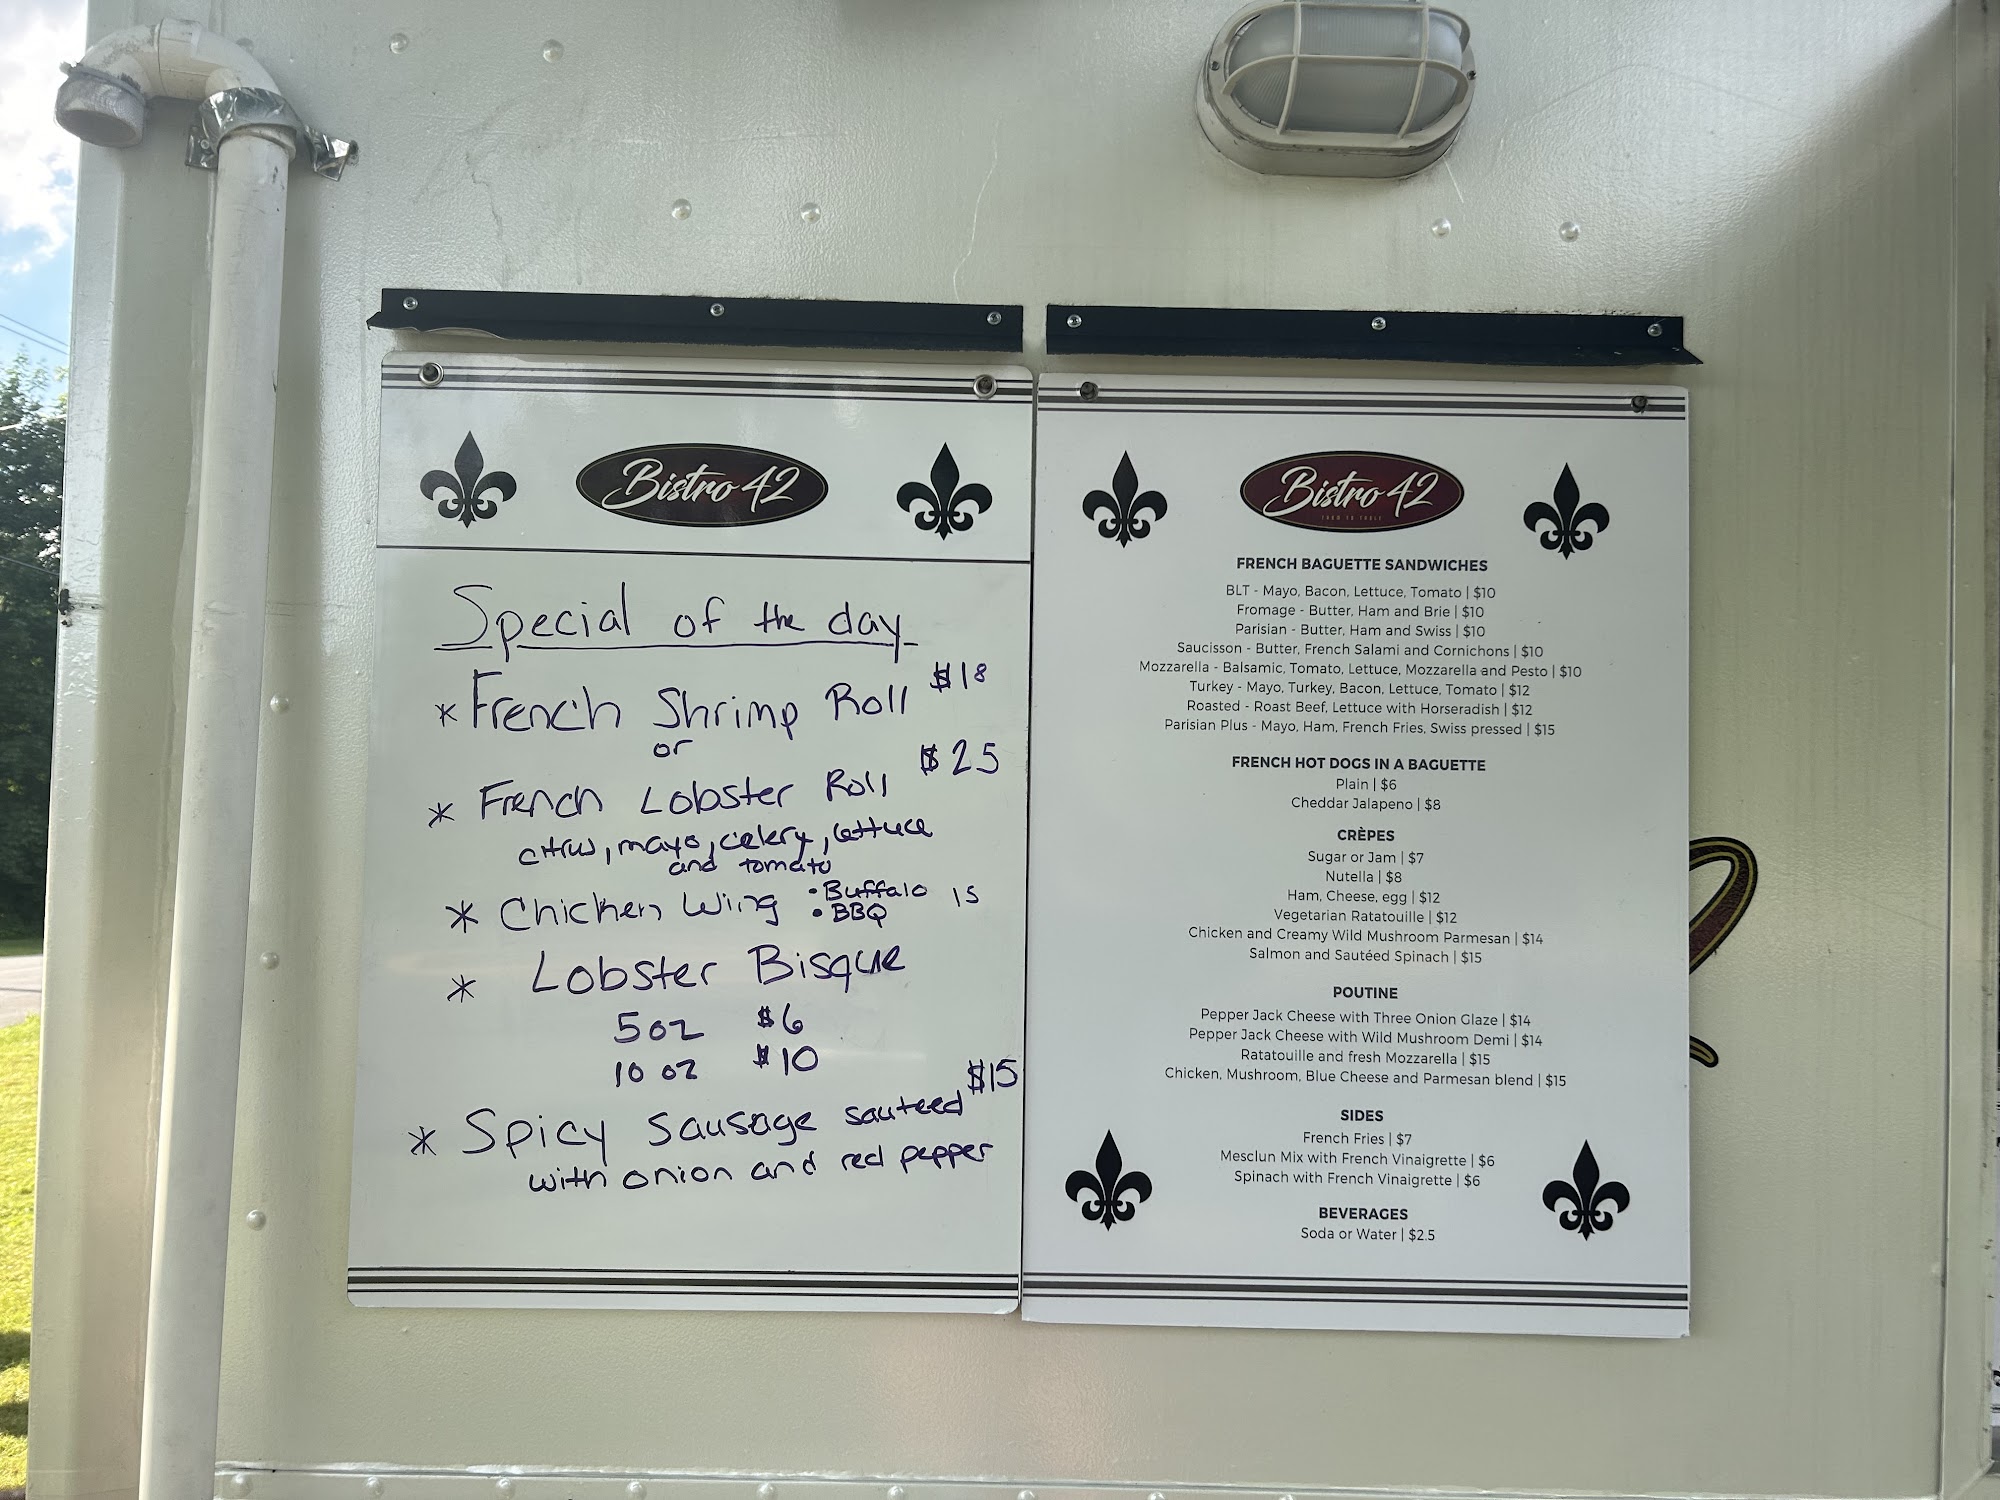 Bistro 42
Special of the day
* French Shrimp Roll $18
or
* French Lobster Roll $25
citrus, mayo, celery, lettuce
and tomato
* Chicken Wing • Buffalo 15
• BBQ
* Lobster Bisque
5 oz $6
10 oz $10
* Spicy Sausage sauteed $15
with onion and red pepper
Bistro 42
FARM TO TABLE
FRENCH BAGUETTE SANDWICHES
BLT - Mayo, Bacon, Lettuce, Tomato | $10
Fromage - Butter, Ham and Brie | $10
Parisian - Butter, Ham and Swiss | $10
Saucisson - Butter, French Salami and Cornichons | $10
Mozzarella - Balsamic, Tomato, Lettuce, Mozzarella and Pesto | $10
Turkey - Mayo, Turkey, Bacon, Lettuce, Tomato | $12
Roasted - Roast Beef, Lettuce with Horseradish | $12
Parisian Plus - Mayo, Ham, French Fries, Swiss pressed | $15
FRENCH HOT DOGS IN A BAGUETTE
Plain | $6
Cheddar Jalapeno | $8
CRÈPES
Sugar or Jam | $7
Nutella | $8
Ham, Cheese, egg | $12
Vegetarian Ratatouille | $12
Chicken and Creamy Wild Mushroom Parmesan | $14
Salmon and Sautéed Spinach | $15
POUTINE
Pepper Jack Cheese with Three Onion Glaze | $14
Pepper Jack Cheese with Wild Mushroom Demi | $14
Ratatouille and fresh Mozzarella | $15
Chicken, Mushroom, Blue Cheese and Parmesan blend | $15
SIDES
French Fries | $7
Mesclun Mix with French Vinaigrette | $6
Spinach with French Vinaigrette | $6
BEVERAGES
Soda or Water | $2.5